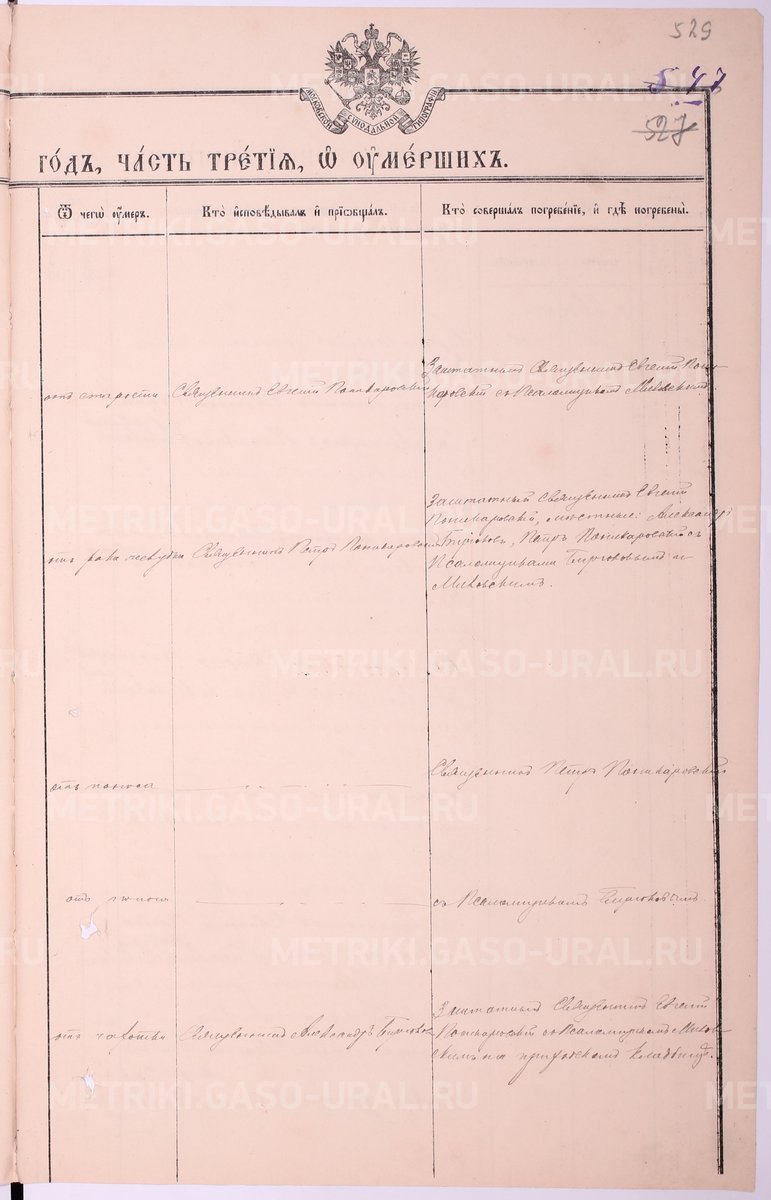 529
547
527
МОСКОВСКОЙ СѴНОДАЛЬНОЙ ТИПОГРАФІИ
ГО́ДЪ, ЧА́СТЬ ТРЕ́ТІѦ, Ѽ ОУ҆МЕ́РШИХЪ.
Ѿ чегѡ̀ оу҆́меръ.
Кто̀ и҆сповѣ́дывалъ и҆ прїѡбща́лъ.
Кто̀ соверша́лъ погребе́нїе, и҆ гдѣ̀ погребены̀.
отъ старости
Священникъ Евгеній Пономаревскій
Заштатный Священникъ Евгеній Поно-
маревскій съ Псаломщикомъ
отъ рака желудка
Священникъ Петръ Пономаревскій
Заштатный Священникъ Евгеній
Пономаревскій, местные: Александръ
Петръ Пономаревскій съ
Псаломщиками и
отъ поноса
Священникъ Петръ Пономаревскій
отъ поноса
съ Псаломщикомъ
отъ чахотки
Священникъ Александръ
Заштатный Священникъ Евгеній
съ Псаломщикомъ
на приходскомъ кладбищѣ.
METRIKI.GASO-URAL.RU